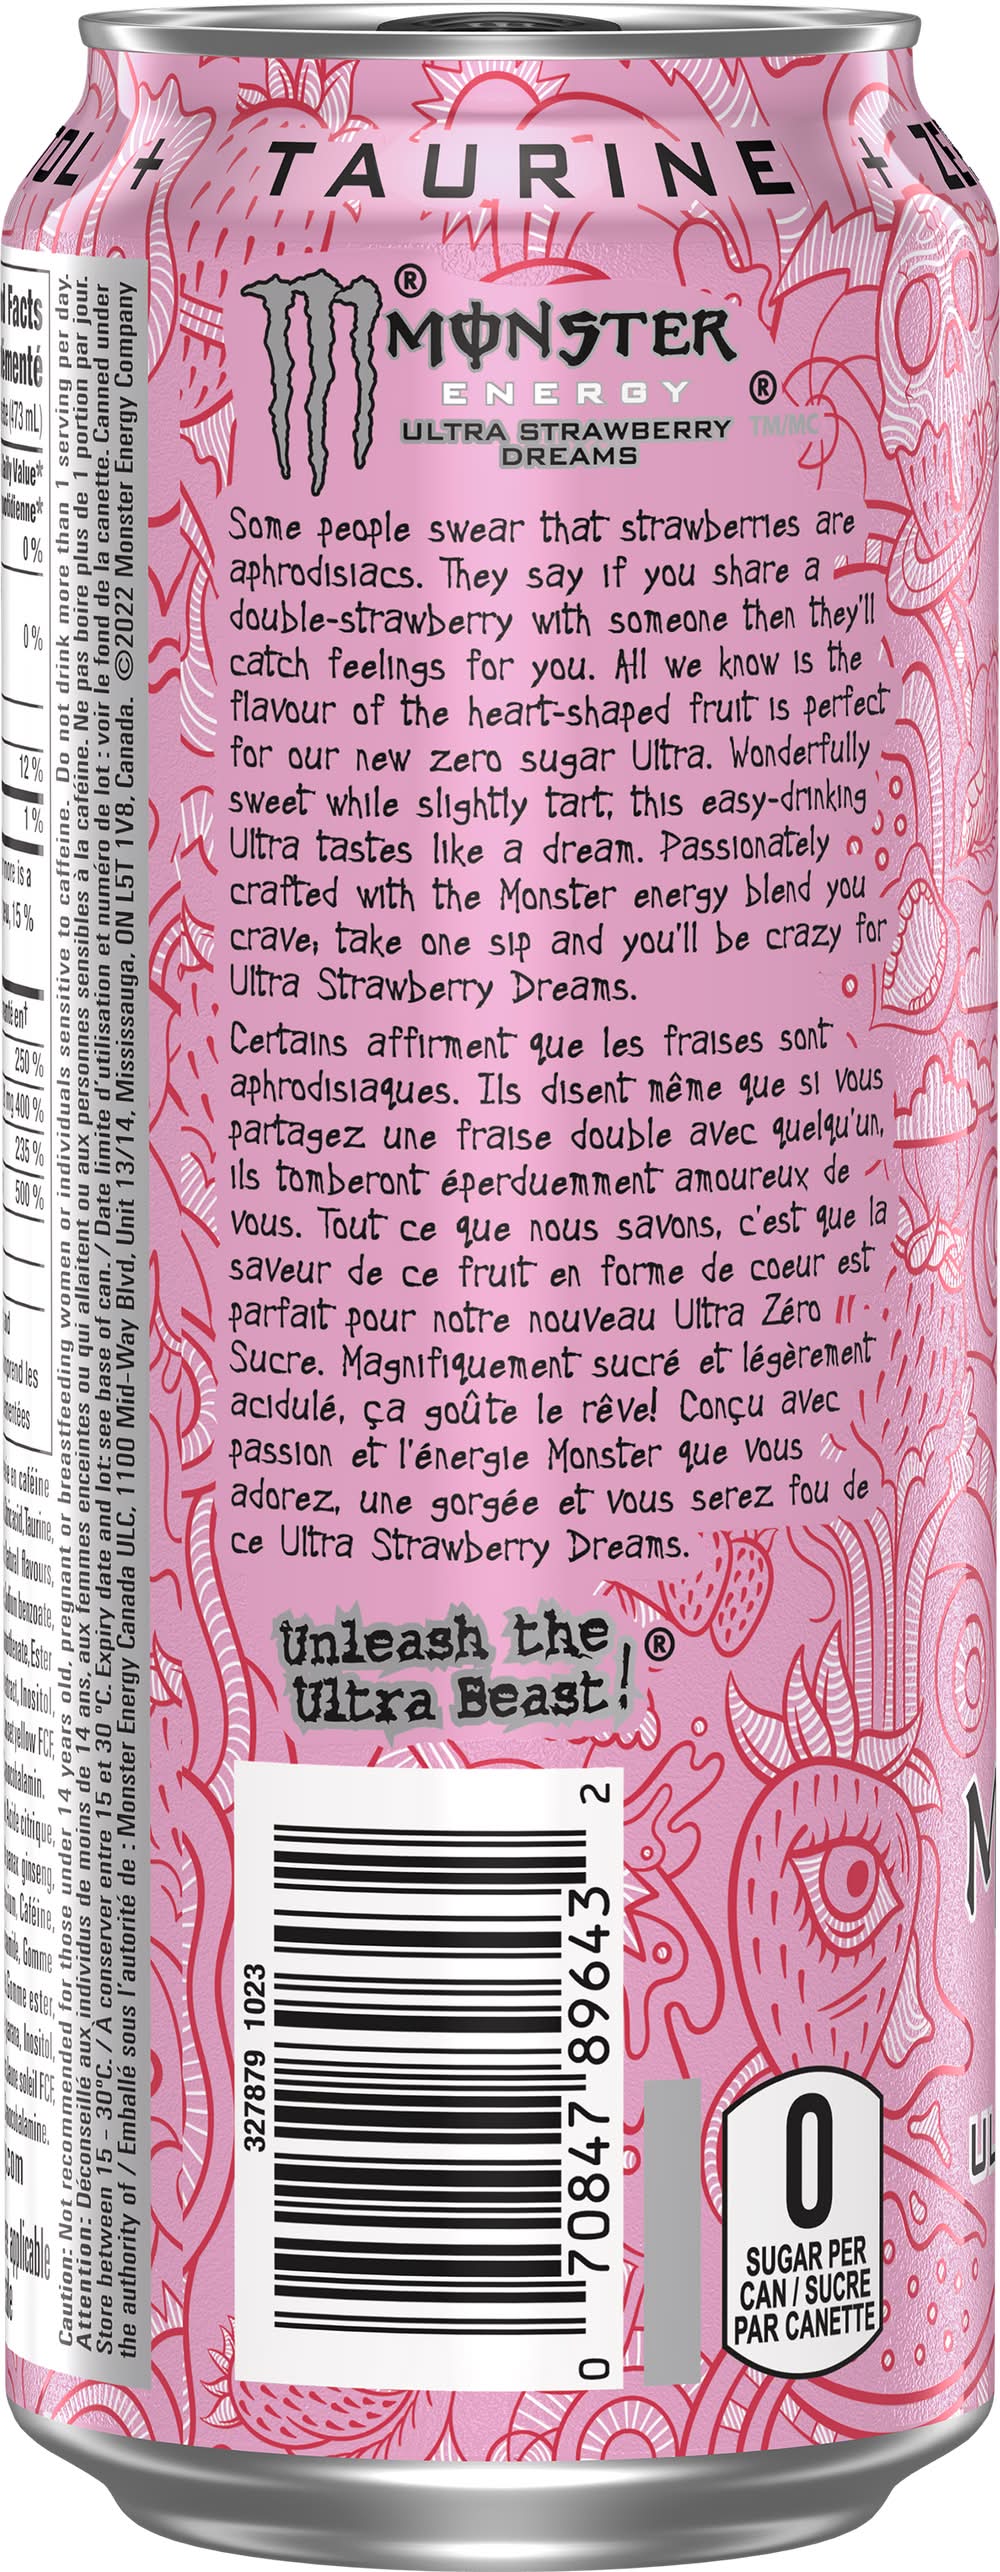 TAURINE +
®
MONSTER
ENERGY ®
ULTRA STRAWBERRY TM/MC
DREAMS
Some people swear that strawberries are
aphrodisiacs. They say if you share a
double-strawberry with someone then they'll
catch feelings for you. All we know is the
flavour of the heart-shaped fruit is perfect
for our new zero sugar Ultra. Wonderfully
sweet while slightly tart, this easy-drinking
Ultra tastes like a dream. Passionately
crafted with the Monster energy blend you
crave, take one sip and you'll be crazy for
Ultra Strawberry Dreams.
Certains affirment que les fraises sont
aphrodisiaques. Ils disent même que si vous
partagez une fraise double avec quelqu'un,
ils tomberont éperduemment amoureux de
vous. Tout ce que nous savons, c'est que la
saveur de ce fruit en forme de coeur est
parfait pour notre nouveau Ultra Zéro
Sucre. Magnifiquement sucré et légèrement
acidulé, ça goûte le rêve! Conçu avec
passion et l'énergie Monster que vous
adorez, une gorgée et vous serez fou de
ce Ultra Strawberry Dreams.
Unleash the
Ultra Beast! ®
327879 1023
0 70847 89643 2
0
SUGAR PER
CAN / SUCRE
PAR CANETTE
Caution: Not recommended for those under 14 years old, pregnant or breastfeeding women or individuals sensitive to caffeine. Do not drink more than 1 serving per day.
Attention: Déconseillé aux individus de moins de 14 ans, aux femmes enceintes ou qui allaitent ou aux personnes sensibles à la caféine. Ne pas boire plus de 1 portion par jour.
Store between 15 - 30°C. / À conserver entre 15 et 30 °C. Expiry date and lot: see base of can. / Date limite d'utilisation et numéro de lot : voir le fond de la canette. Canned under
the authority of / Emballé sous l'autorité de : Monster Energy Canada ULC, 1100 Mid-Way Blvd, Unit 13/14, Mississauga, ON L5T 1V8, Canada. ©2022 Monster Energy Company
Facts
(473 mL)
Daily Value*
0 %
0 %
12 %
1 %
15 %
250 %
400 %
235 %
500 %
en caféine
Taurine,
flavours,
benzoate,
Ester
Inositol,
yellow FCF,
citrique,
ginseng,
Caféine,
Gomme
ester,
Inositol,
soleil FCF,
applicable